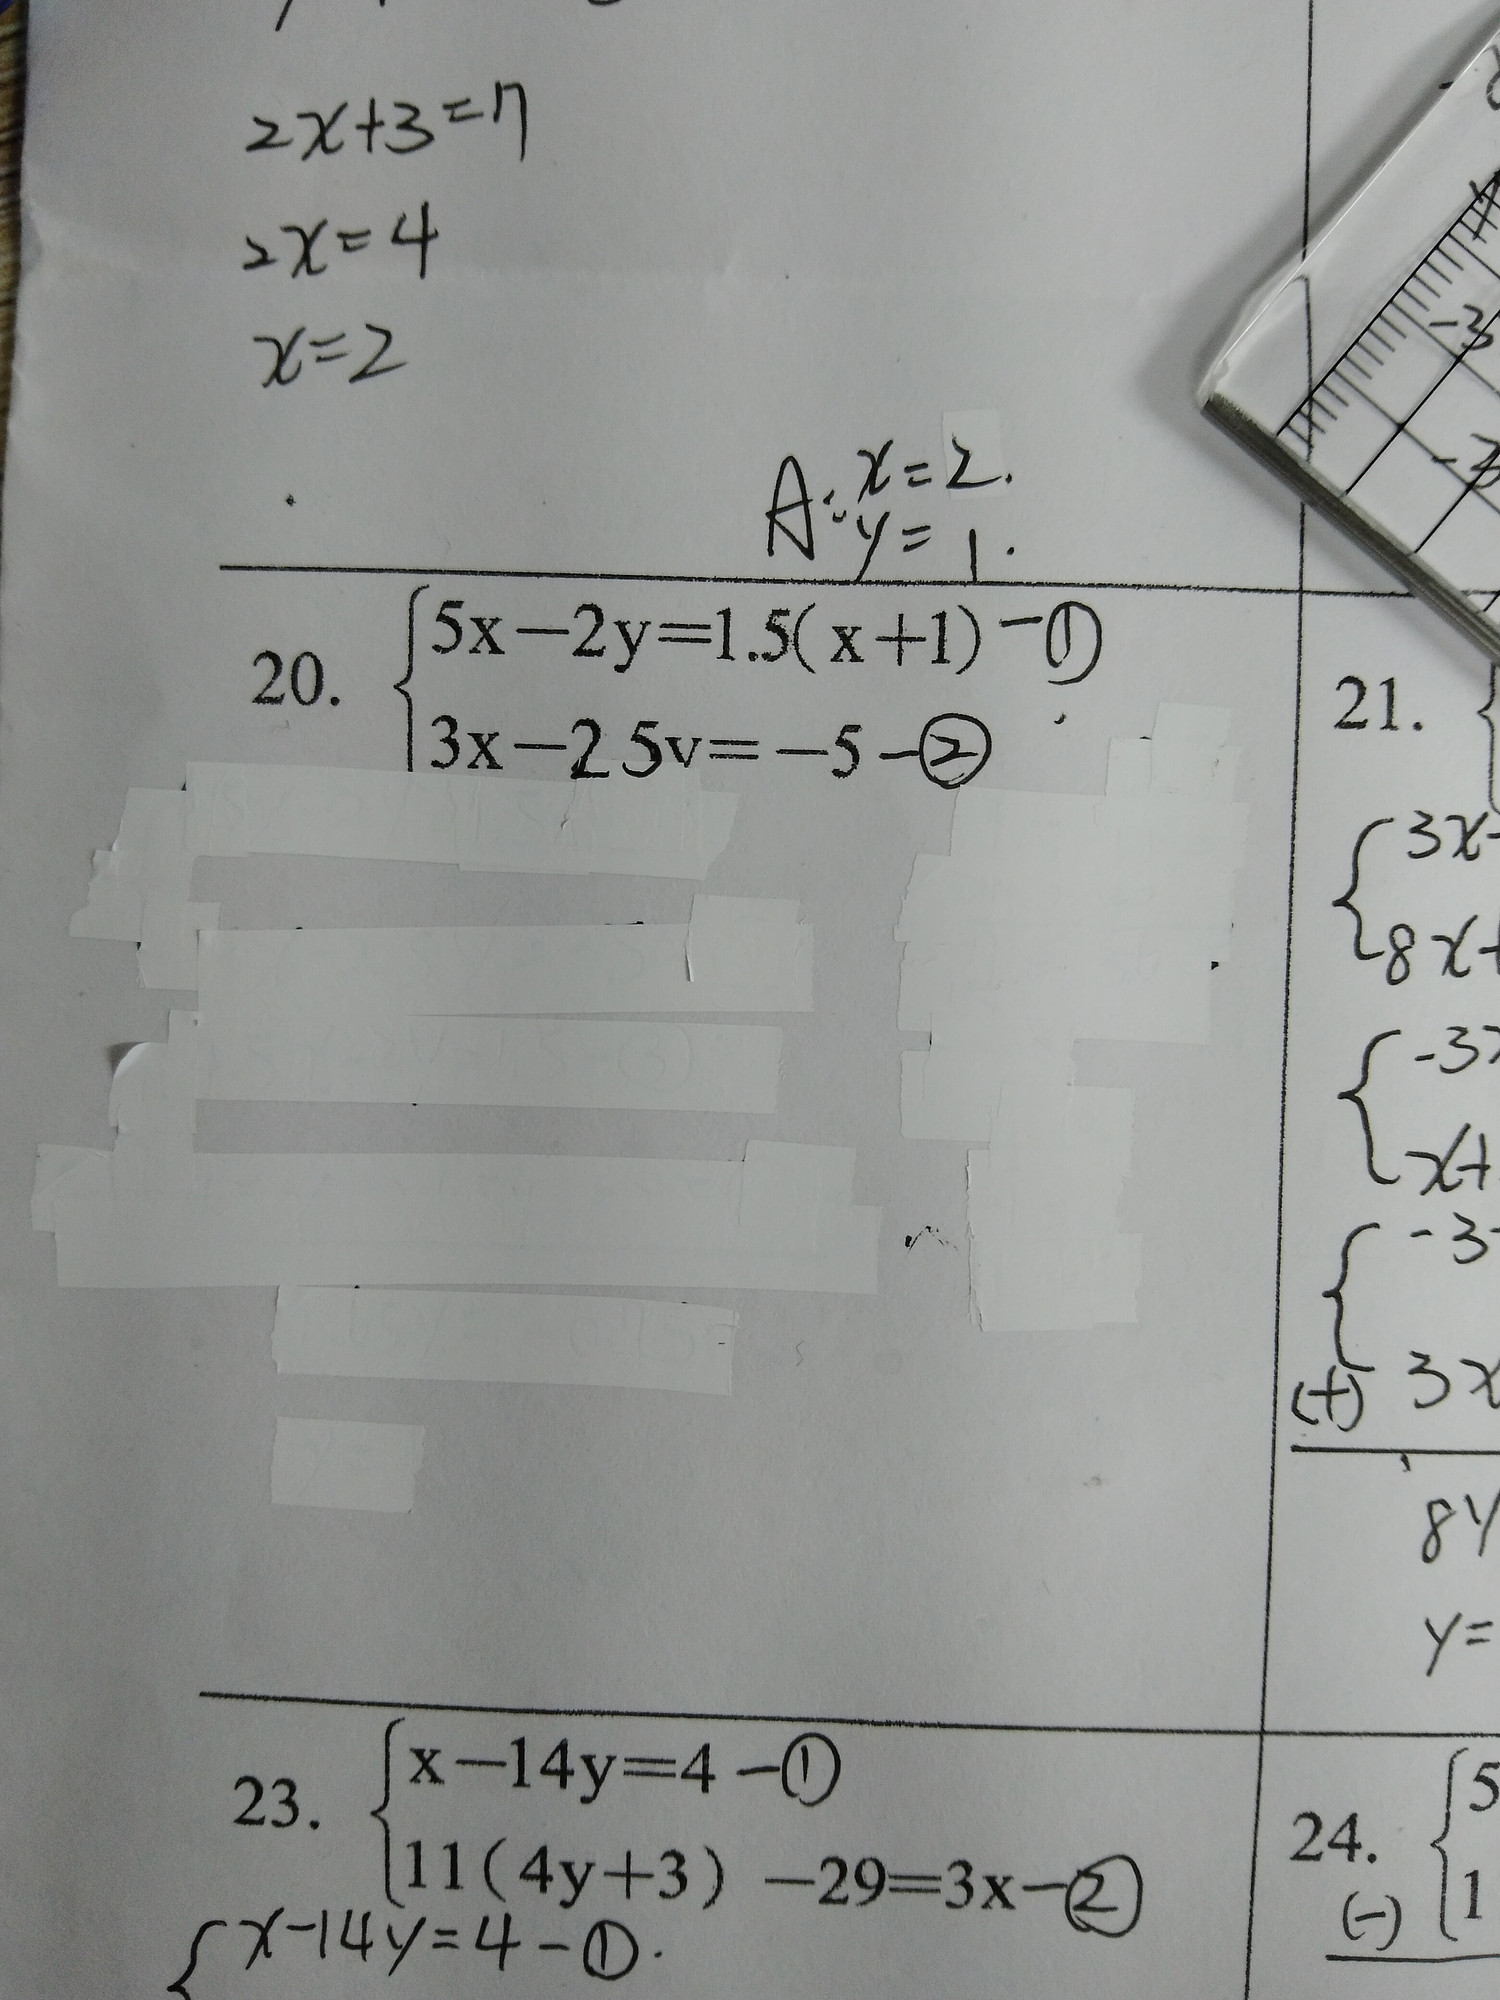 2x+3=7
2x=4
x=2
A: x=2.
y=1.
20. {5x−2y=1.5(x+1) -①
3x−2.5y=−5 -②
21.
{3x-
8x+
{-3x
x+
{-3
(+) 3x
8y
y=
23. {x−14y=4 -①
11(4y+3) −29=3x -②
{x-14y=4-①.
24. {5
(-) 1